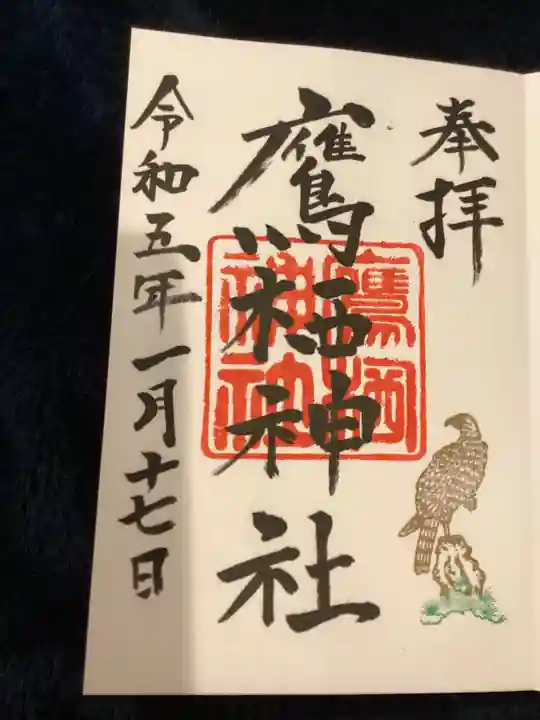 奉拝
鷹栖神社
鷹栖
神社
令和五年一月十七日